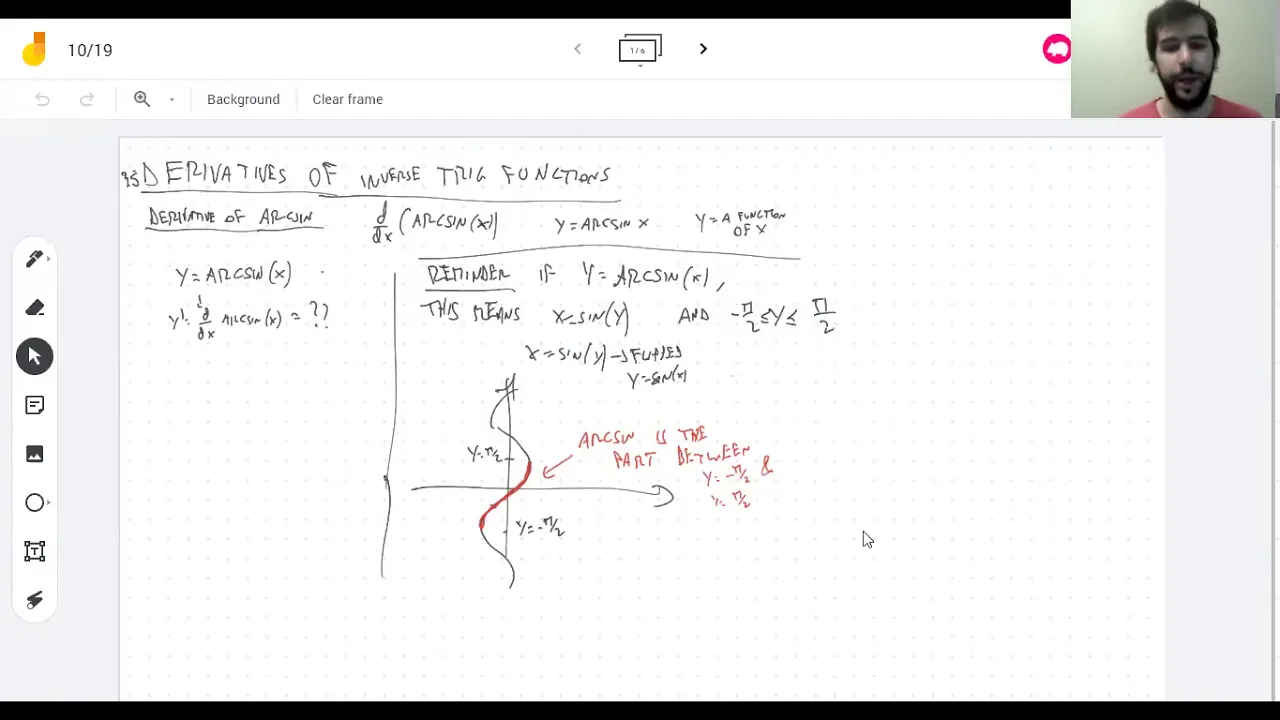 10/19
1/6
Background
Clear frame
3.5 DERIVATIVES OF INVERSE TRIG FUNCTIONS
DERIVATIVE OF ARCSIN
d/dx (ARCSIN(x))
Y = ARCSIN x
Y = A FUNCTION
OF X
Y = ARCSIN(x)
Y' = d/dx ARCSIN(x) = ??
REMINDER IF Y = ARCSIN(x),
THIS MEANS X = SIN(Y) AND -π/2 ≤ Y ≤ π/2
X = SIN(Y) → FLIPPED
Y = SIN(x)
Y = π/2
ARCSIN IS THE
PART BETWEEN
Y = -π/2 &
Y = π/2
Y = -π/2